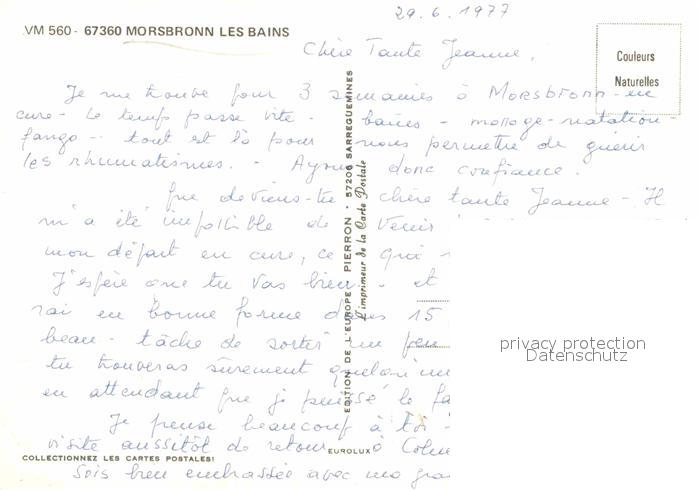 29.6.1977
VM 560 - 67360 MORSBRONN LES BAINS
Couleurs
Naturelles
Chère Tante Jeanne,
Je me trouve pour 3 semaines à Morsbronn - en
cure - Le temps passe vite - baines - massage - natation
fango - tout est là pour nous permettre de guérir
les rhumatismes. - Ayons donc confiance.
Que deviens-tu chère tante Jeanne - Il
m'a été impossible de venir
mon départ en cure, ce qui
J'espère que tu vas bien - et
rai en bonne forme dans 15
beau - tâche de sortir un peu
tu trouveras sûrement quelqu'un
en attendant que je puisse le fa
Je pense beaucoup à toi -
visite aussitôt de retour à Colm
Sois bien embrassée avec ma gra
EDITION DE L'EUROPE PIERRON • 57206 SARREGUEMINES
L'imprimeur de la Carte Postale
EUROLUX
COLLECTIONNEZ LES CARTES POSTALES!
privacy protection
Datenschutz